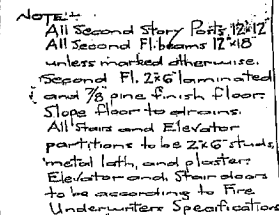 NOTE:-
All Second Story Posts 12"x12"
All Second Fl. beams 12"x18"
unless marked otherwise.
Second Fl. 2x6" laminated
and 7/8" pine finish floor.
Slope floor to drains.
All Stairs and Elevator
partitions to be 2x6" studs,
metal lath, and plaster.
Elevator and Stair doors
to be according to Fire
Underwriters Specifications